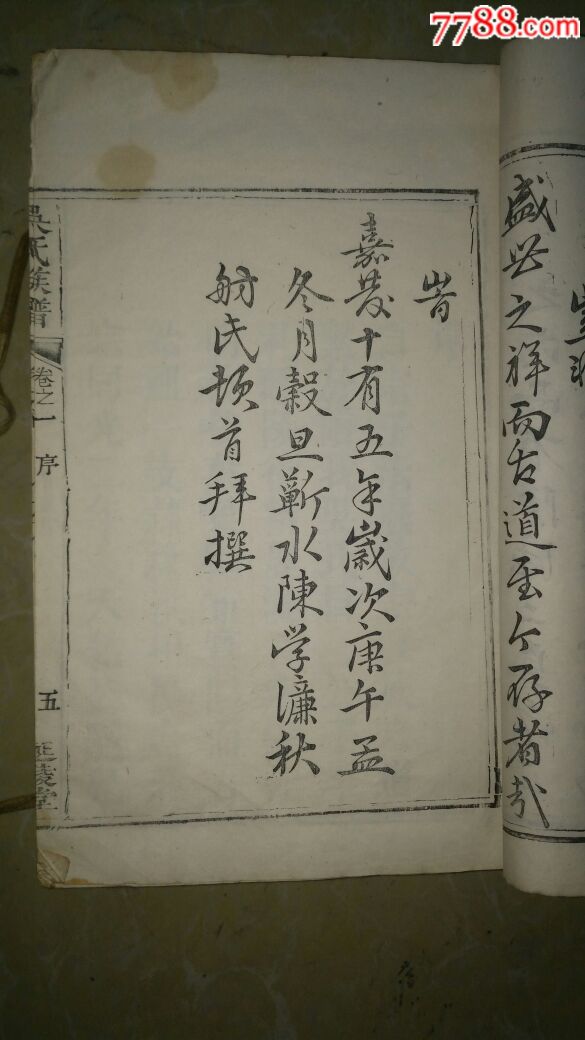 7788.com
盛世之祥而古道至今存者哉
旹
嘉慶十有五年歲次庚午孟
冬月穀旦蘄水陳学濂秋
舫氏頓首拜撰
吳氏族譜
卷之一
序
五
延陵堂